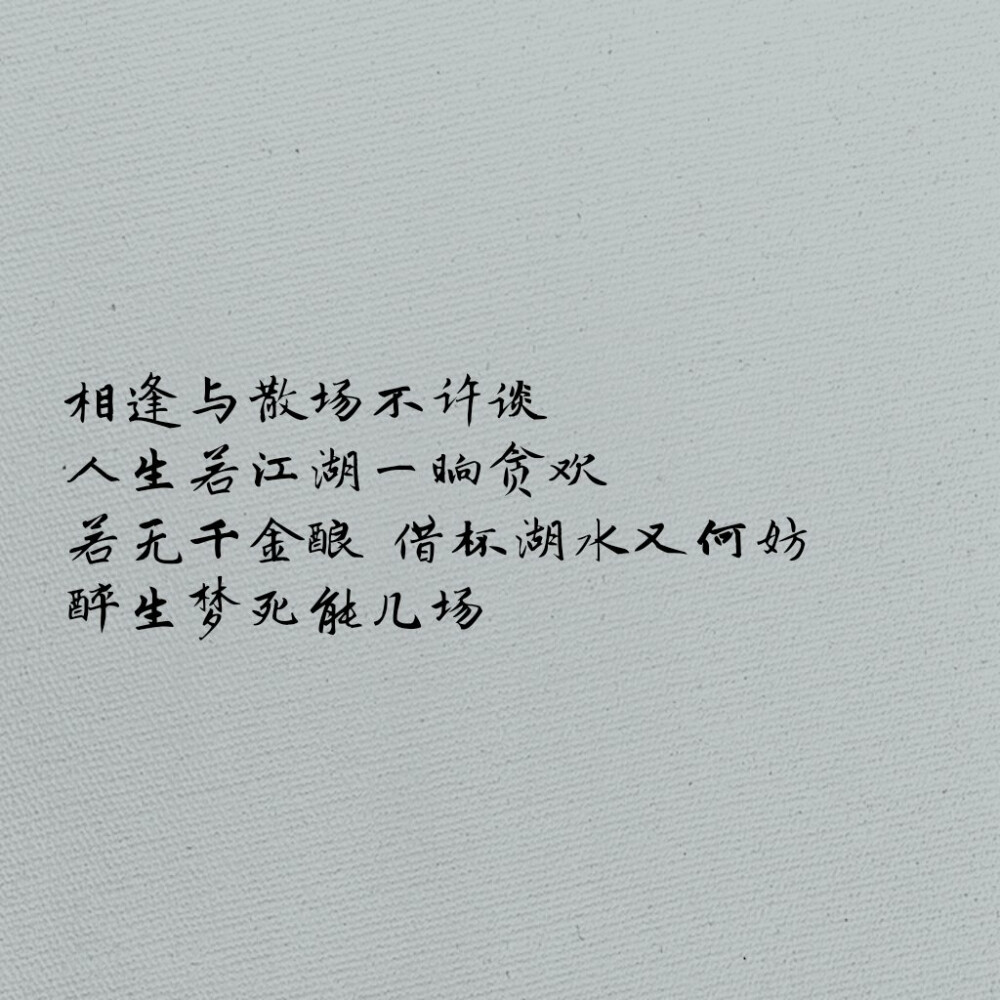 相逢与散场不许谈
人生若江湖一晌贪欢
若无千金酿 借杯湖水又何妨
醉生梦死能几场